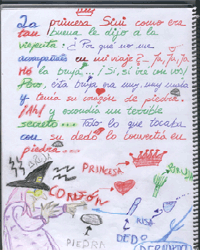 La princesa Sini como era
tan buena le dijo a la
viejita: ¿Por qué no me
acompañas en mi viaje? Ja, Ja, Ja
No la bruja.../Si, si iré con vos/
Pero, esta bruja era muy, muy mala
y tenía su corazón de piedra.
¡Ah! y escondía un terrible
secreto... todo lo que tocaba
con su dedo lo convertía en
piedra.
BRUJA
PRINCESA
CORAZÓN
PIEDRA
DEDO